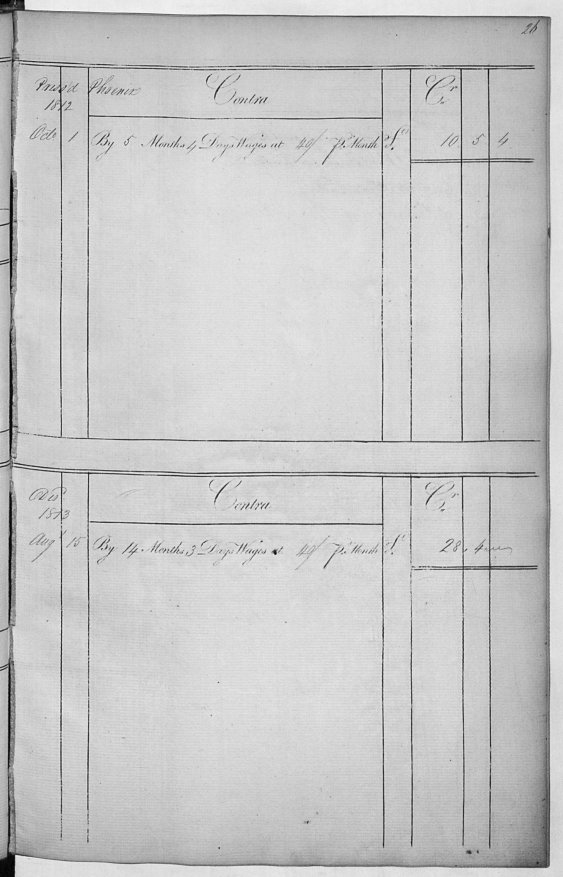 26
Press'd Phoenix Contra Cr
1812
Octr 1 By 5 Months 4 Days Wages at 40/ pr Month £ 10 5 4
Dis
1813 Contra Cr
Augt 15 By 14 Months 3 Days Wages at 40/ pr Month £ 28 4